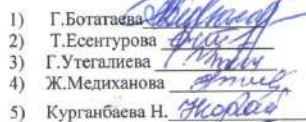 1) Г.Ботатаева
2) Т.Есентурова
3) Г.Утегалиева
4) Ж.Медиханова
5) Курганбаева Н.